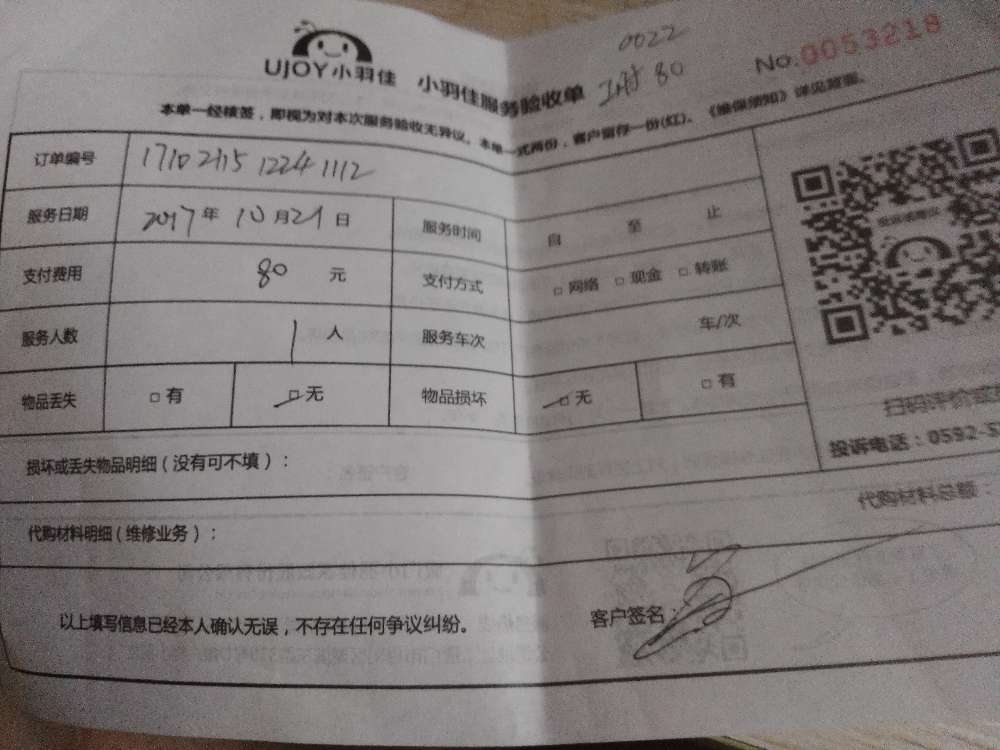 0022
UJOY小羽佳 小羽佳服务验收单 No.0053218
80
本单一经核签，即视为对本次服务验收无异议。本单一式两份，客户留存一份(红)。《维保须知》详见背面。
订单编号
服务日期 2017年10月21日 服务时间 自 至 止
支付费用 80 元 支付方式 □ 网络 □ 现金 □ 转账
服务人数 1 人 服务车次 车/次
物品丢失 □ 有 □ 无 物品损坏 □ 无 □ 有
扫码评价或
投诉电话：0592-5
损坏或丢失物品明细（没有可不填）：
代购材料明细（维修业务）： 代购材料总额：
以上填写信息已经本人确认无误，不存在任何争议纠纷。 客户签名：